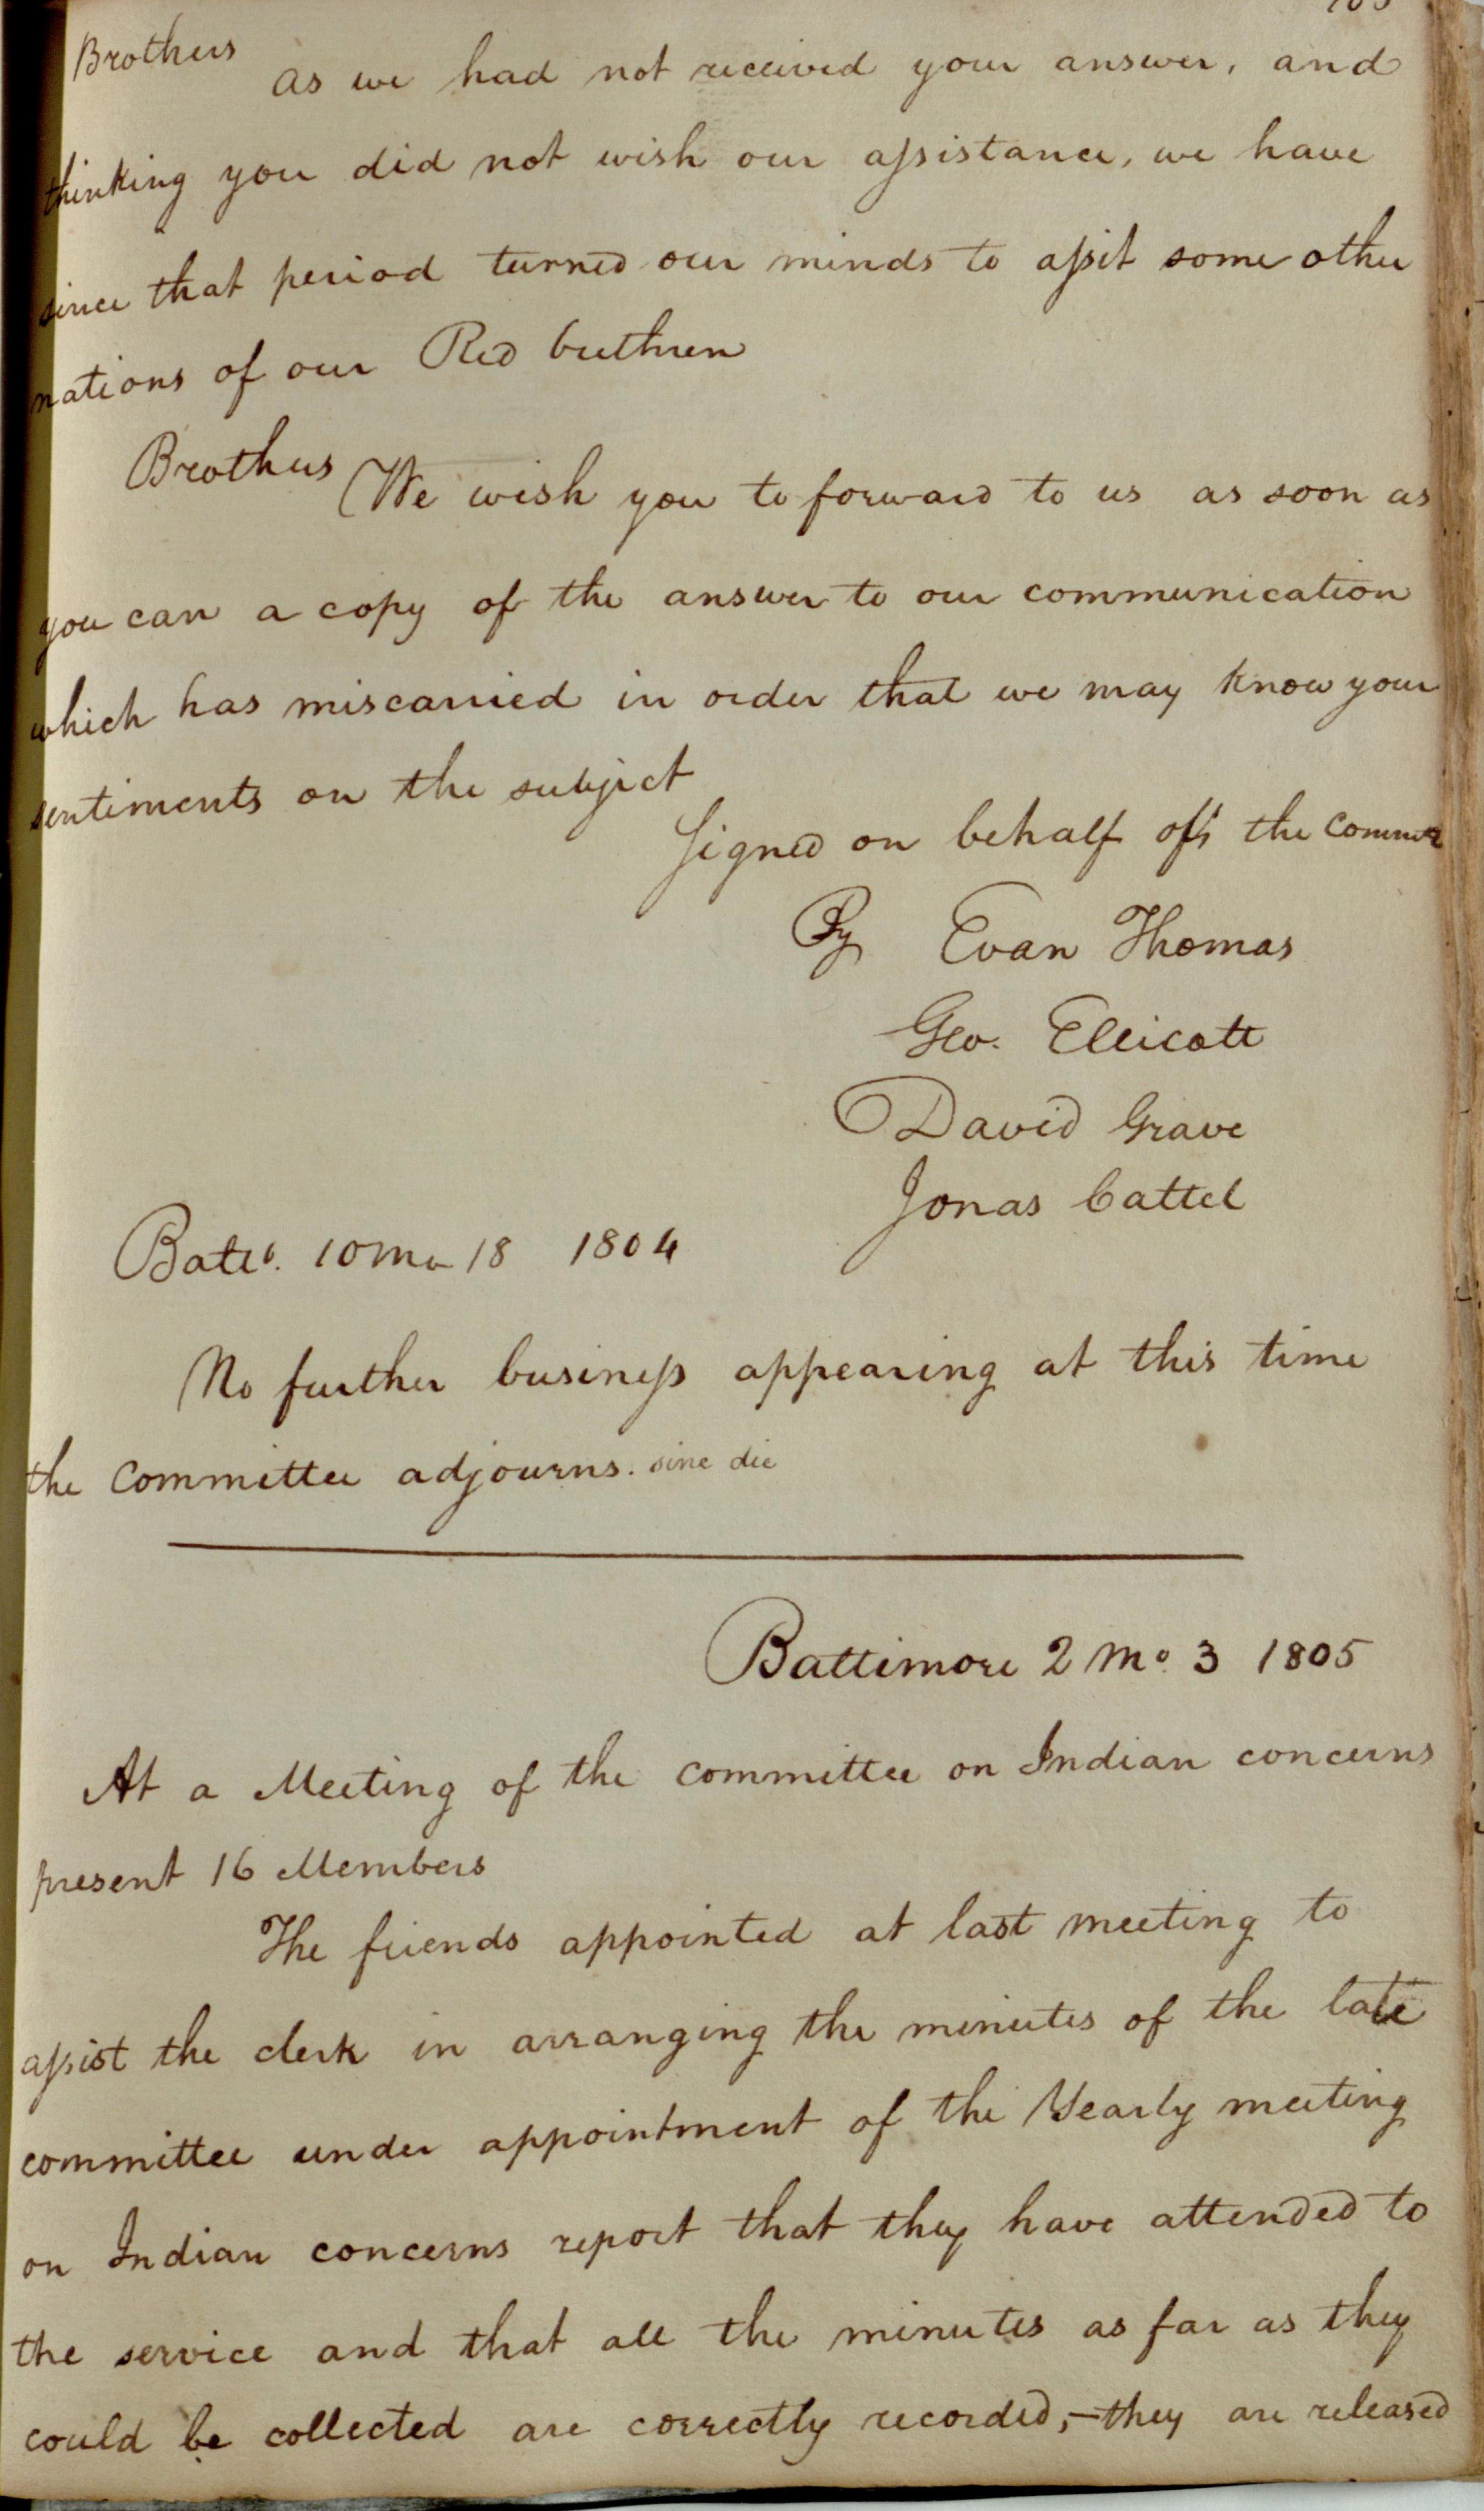 Brothers
as we had not received your answer, and
thinking you did not wish our assistance, we have
since that period turned our minds to assit some other
nations of our Red brethren
Brothers We wish you to forward to us as soon as
you can a copy of the answer to our communication
which has miscarried in order that we may know your
sentiments on the subject
Signed on behalf of the Committee
By Evan Thomas
Geo. Ellicott
David Grave
Jonas Cattel
Balto. 10 Mo 18 1804
No further business appearing at this time
the Committee adjourns. sine die
Baltimore 2 Mo. 3 1805
At a Meeting of the committee on Indian concerns
present 16 Members
The friends appointed at last meeting to
assist the clerk in arranging the minutes of the late
committee under appointment of the Yearly meeting
on Indian concerns report that they have attended to
the service and that all the minutes as far as they
could be collected are correctly recorded,—they are released